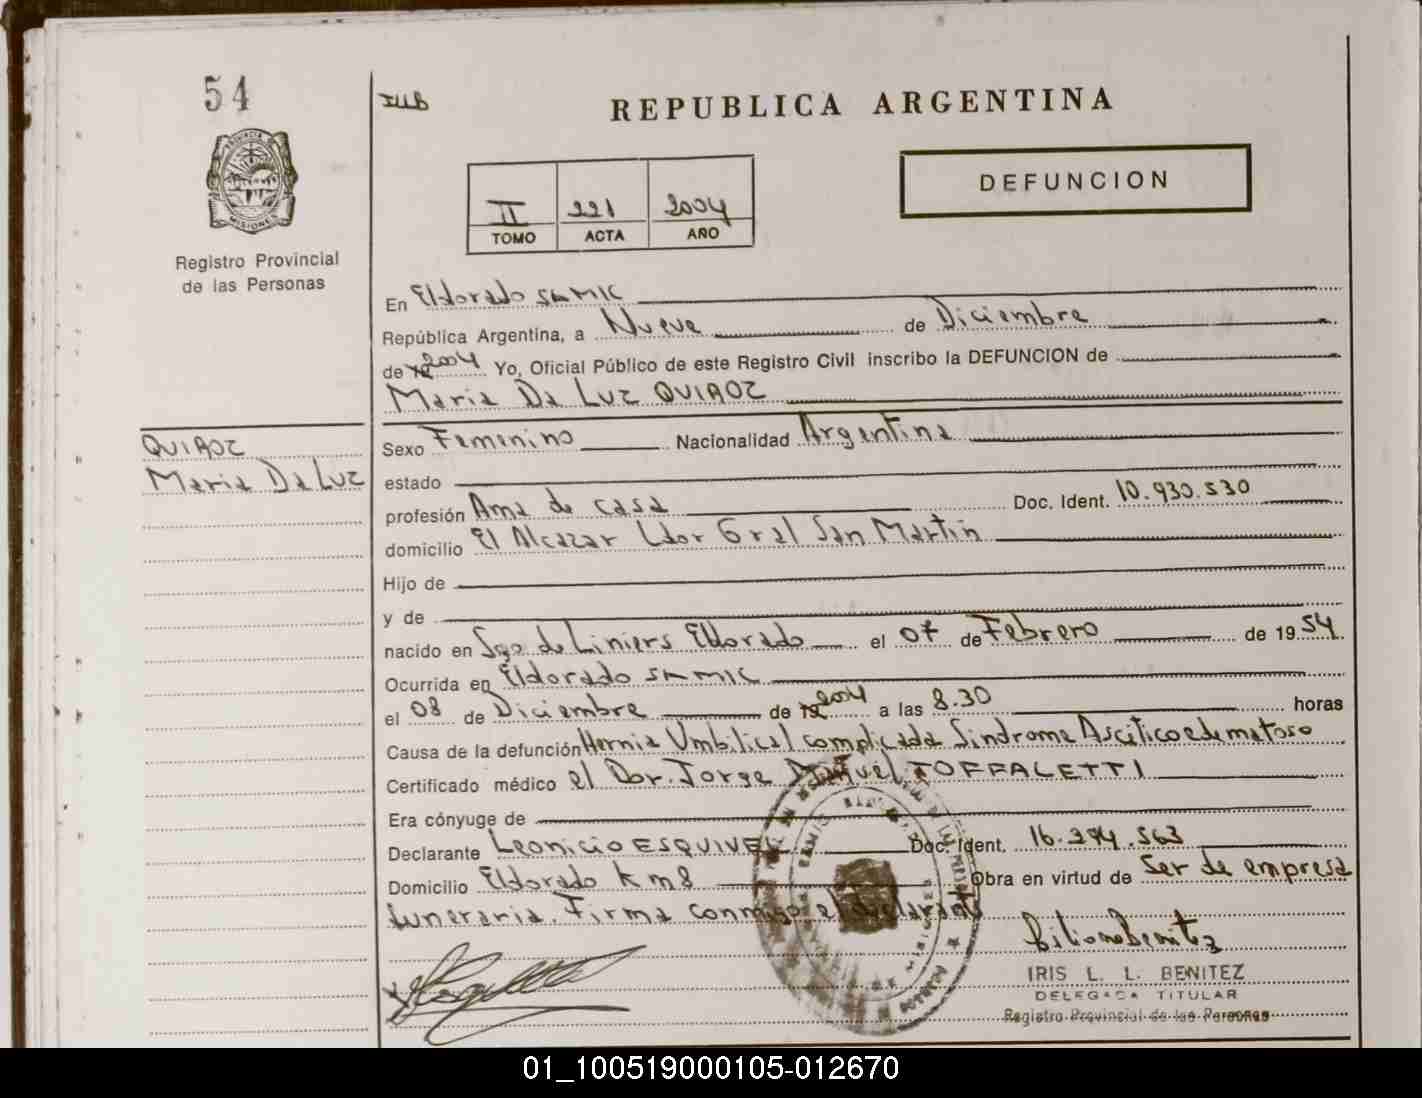 54
PROVINCIA
MISIONES
Registro Provincial
de las Personas
REPUBLICA ARGENTINA
DEFUNCION
II 221 2004
TOMO ACTA AÑO
En Eldorado SAMIC
República Argentina, a Nueve de Diciembre
de 2004 Yo, Oficial Público de este Registro Civil inscribo la DEFUNCION de
Maria Da Luz QUIROZ
QUIROZ
Maria Da Luz
Sexo Femenino Nacionalidad Argentina
estado
profesión Ama de casa Doc. Ident. 10.930.530
domicilio El Alcazar Ldor Gral San Martin
Hijo de
y de
nacido en Sgo de Liniers Eldorado el 07 de Febrero de 1954
Ocurrida en Eldorado SAMIC
el 08 de Diciembre de 2004 a las 8.30 horas
Causa de la defunción Hernia Umbilical complicada Sindrome Ascitico edematoso
Certificado médico el Dor. Jorge Manuel TOFFALETTI
Era cónyuge de
Declarante Leonicio ESQUIVEL Doc. Ident. 16.294.563
Domicilio Eldorado Km 8 Obra en virtud de Ser de empresa
funeraria. Firma conmigo el declarante
IRIS L. L. BENITEZ
DELEGADA TITULAR
Registro Provincial de las Personas
01_100519000105-012670